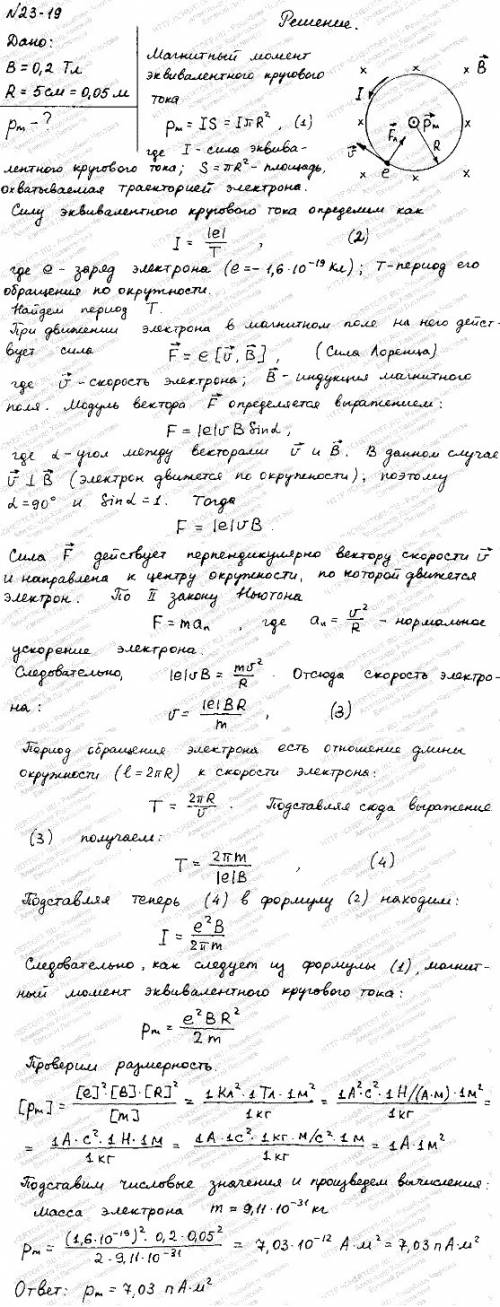 №23-19
Решение.
Дано:
B = 0,2 Тл
R = 5см = 0,05 м
pₘ - ?
Магнитный момент
эквивалентного кругового
тока
pₘ = IS = IπR² , (1)
где I - сила эквива-
лентного кругового тока; S = πR² - площадь,
охватываемая траекторией электрона.
x x x B⃗
I
x ⊙ p⃗ₘ x
F⃗л R
v⃗
x e x x
Силу эквивалентного кругового тока определим как
I = |e|/T , (2)
где e - заряд электрона (e = - 1,6·10⁻¹⁹ Кл); T - период его
обращения по окружности.
Найдем период T.
При движении электрона в магнитном поле на него дейст-
вует сила F⃗ = e [v⃗, B⃗] , (Сила Лоренца)
где v⃗ - скорость электрона; B⃗ - индукция магнитного
поля. Модуль вектора F⃗ определяется выражением:
F = |e|vB Sinα,
где α - угол между векторами v⃗ и B⃗. В данном случае
v⃗ ⊥ B⃗ (электрон движется по окружности), поэтому
α = 90° и Sinα = 1. Тогда
F = |e|vB.
Сила F⃗ действует перпендикулярно вектору скорости v⃗
и направлена к центру окружности, по которой движется
электрон. По II закону Ньютона
F = maₙ , где aₙ = v²/R - нормальное
ускорение электрона.
Следовательно, |e|vB = mv²/R . Отсюда скорость электро-
на: v = |e|BR/m , (3)
Период обращения электрона есть отношение длины
окружности (l = 2πR) к скорости электрона:
T = 2πR/v . Подставляя сюда выражение
(3) получаем:
T = 2πm/|e|B , (4)
Подставляя теперь (4) в формулу (2) находим:
I = e²B/2πm
Следовательно, как следует из формулы (1), магнит-
ный момент эквивалентного кругового тока:
pₘ = e²BR²/2m
Проверим размерность.
[pₘ] = [e]²·[B]·[R]²/[m] = 1Кл²·1Тл·1м²/1кг = 1А²·с²·1Н/(А·м)·1м²/1кг =
= 1А·с²·1Н·1м/1кг = 1А·1с²·1кг·м/с²·1м/1кг = 1А·1м²
Подставим числовые значения и произведем вычисления:
Масса электрона m = 9,11·10⁻³¹ кг
pₘ = (1,6·10⁻¹⁹)²·0,2·0,05²/2·9,11·10⁻³¹ = 7,03·10⁻¹² А·м² = 7,03 пА·м²
Ответ: pₘ = 7,03 пА·м²